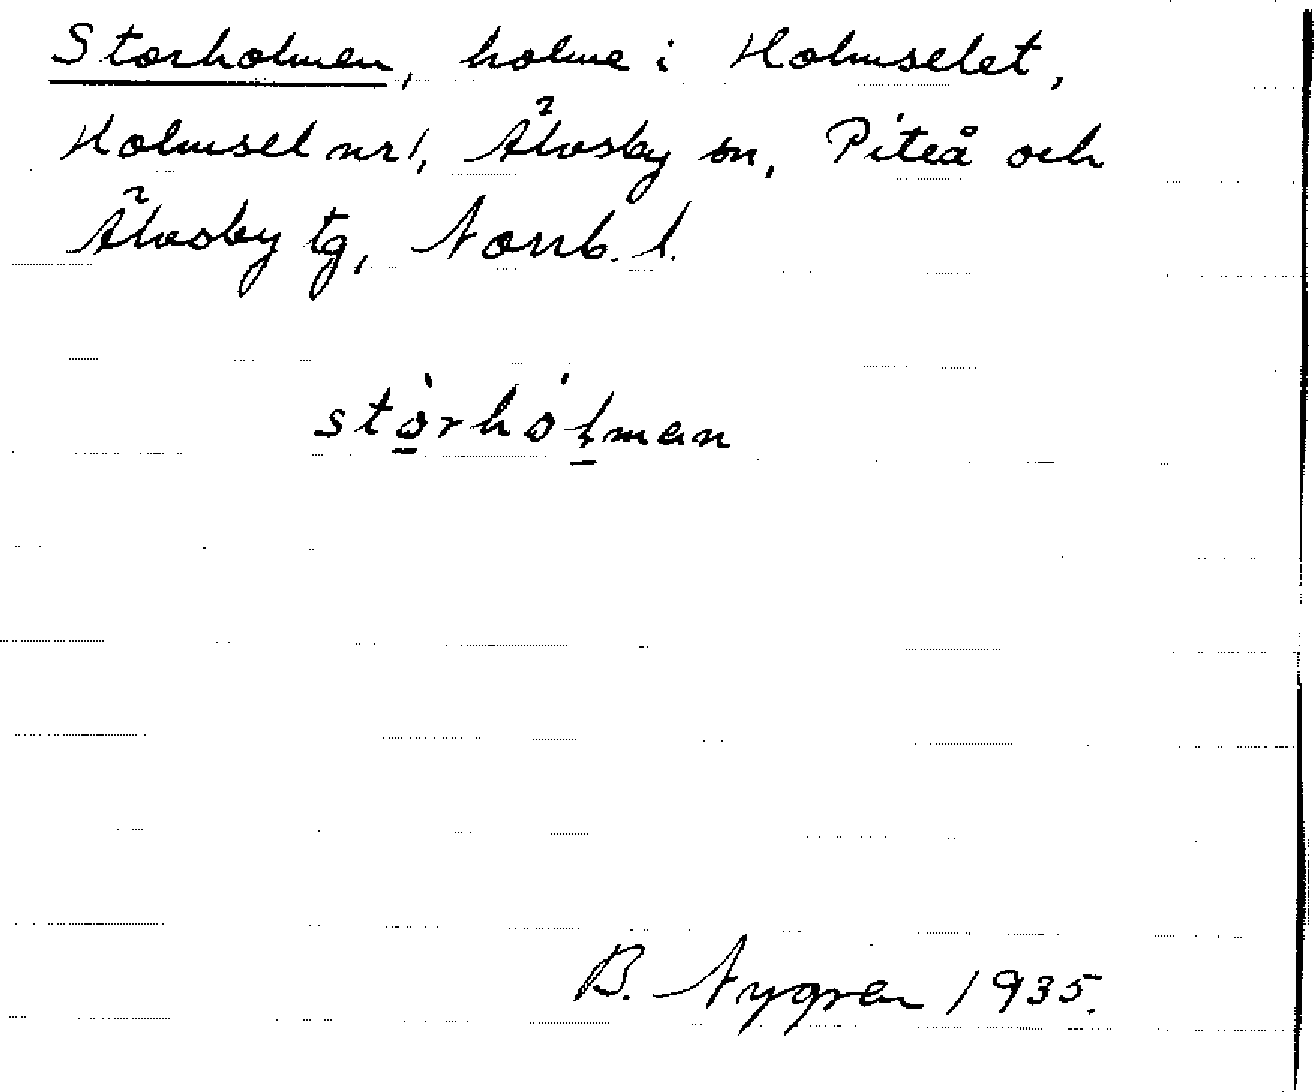 Storholmen, holme i Holmselet,
Holmsel nr 1, Älvsby sn, Piteå och
Älvsby tg, Norrb. l.
stò̠rhó̠ɫman
B. Nygren 1935.